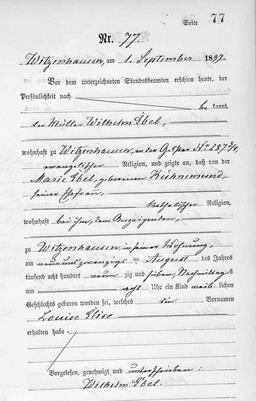 Seite 77
Nr. 77.
Witzenhausen, am 1. September 1897.
Vor dem unterzeichneten Standesbeamten erschien heute, der
Persönlichkeit nach
be kannt,
der Müller Wilhelm Ebel,
wohnhaft zu Witzenhausen,
evangelischer Religion, und zeigte an, daß von der
Marie Ebel, geborenen Kühnemund,
seiner Ehefrau,
katholischer Religion,
wohnhaft bei ihm, dem Anzeigenden,
zu Witzenhausen, in seiner Wohnung,
am neunundzwanzigsten August des Jahres
tausend acht hundert neun zig und sieben, Nachmittags
um acht Uhr ein Kind weib lichen
Geschlechts geboren worden sei, welches die Vornamen
Louise Elise
erhalten habe.
Vorgelesen, genehmigt und unterschrieben:
Wilhelm Ebel